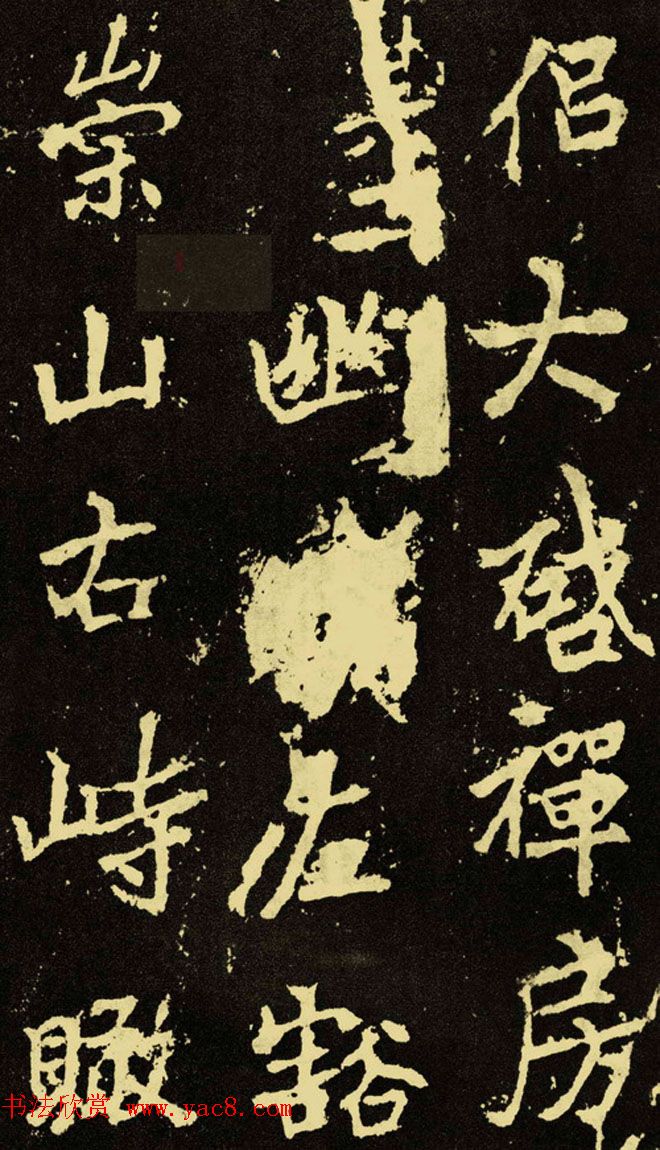 侣大啓禪房
幽左豁
崇山右峙瞰
书法欣赏 www.yac8.com